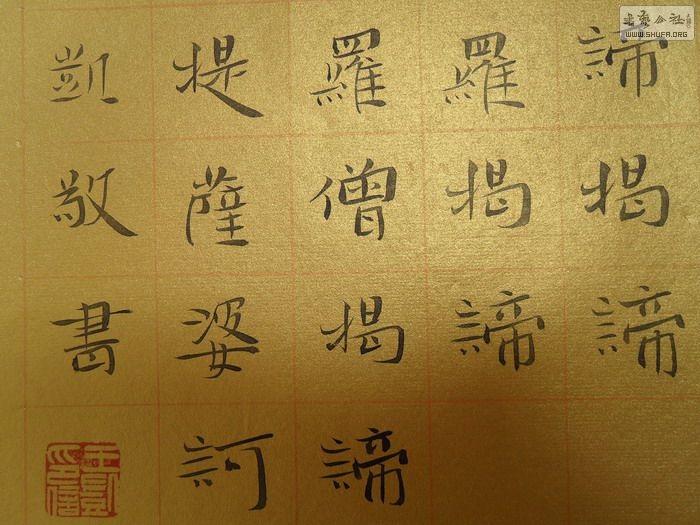 諦揭諦
羅揭諦
羅僧揭諦
提薩婆訶
凱敬書
王凱印信
书艺公社
WWW.SHUFA.ORG